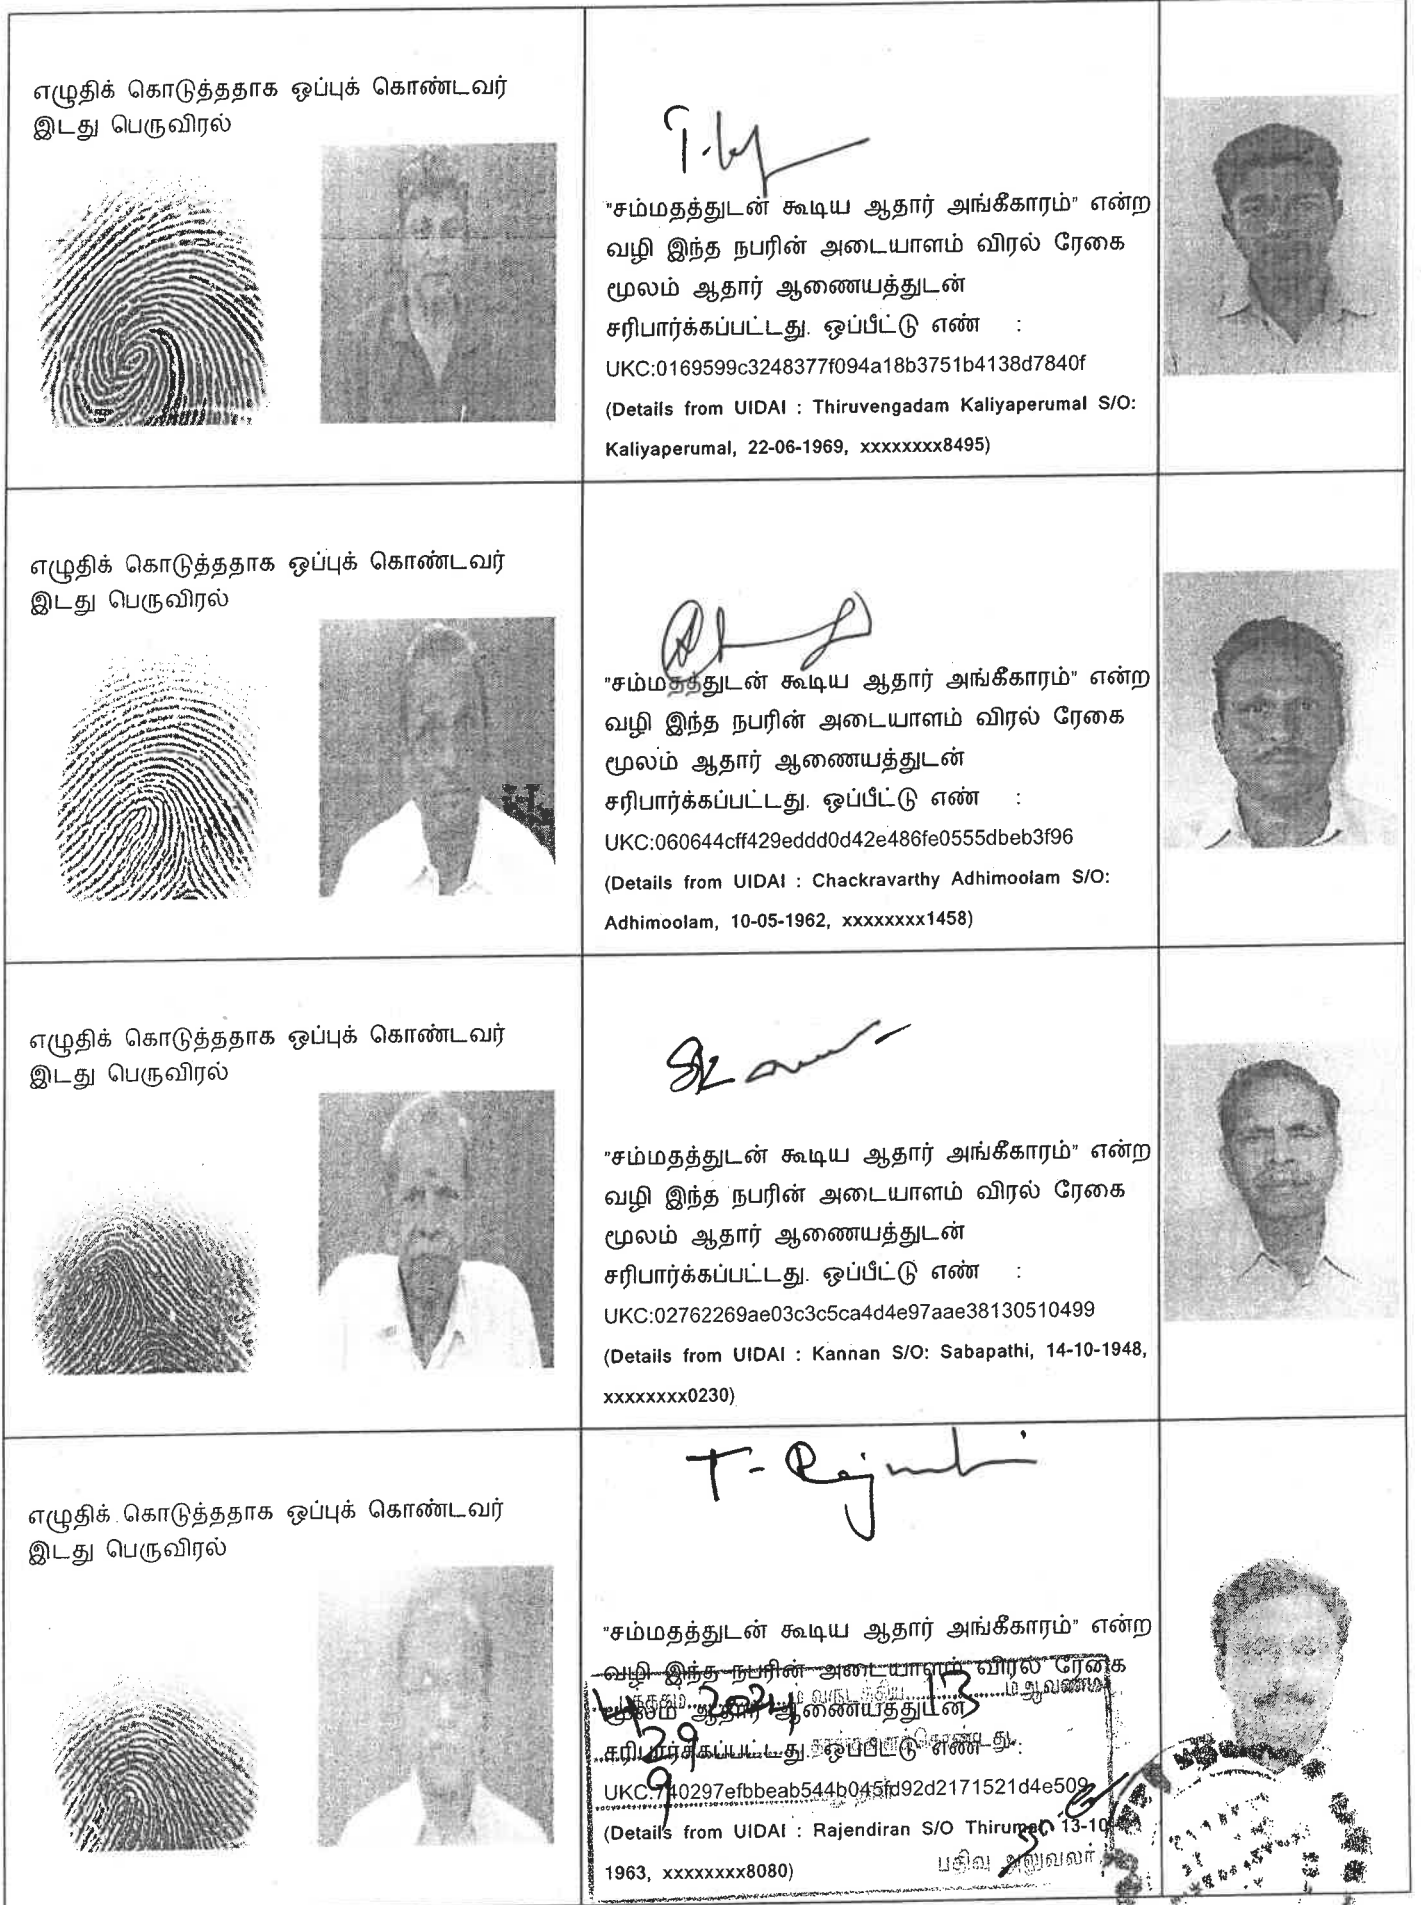 எழுதிக் கொடுத்ததாக ஒப்புக் கொண்டவர்
இடது பெருவிரல்
"சம்மதத்துடன் கூடிய ஆதார் அங்கீகாரம்" என்ற
வழி இந்த நபரின் அடையாளம் விரல் ரேகை
மூலம் ஆதார் ஆணையத்துடன்
சரிபார்க்கப்பட்டது. ஒப்பீட்டு எண் :
UKC:0169599c3248377f094a18b3751b4138d7840f
(Details from UIDAI : Thiruvengadam Kaliyaperumal S/O:
Kaliyaperumal, 22-06-1969, xxxxxxxx8495)
எழுதிக் கொடுத்ததாக ஒப்புக் கொண்டவர்
இடது பெருவிரல்
"சம்மதத்துடன் கூடிய ஆதார் அங்கீகாரம்" என்ற
வழி இந்த நபரின் அடையாளம் விரல் ரேகை
மூலம் ஆதார் ஆணையத்துடன்
சரிபார்க்கப்பட்டது. ஒப்பீட்டு எண் :
UKC:060644cff429eddd0d42e486fe0555dbeb3f96
(Details from UIDAI : Chackravarthy Adhimoolam S/O:
Adhimoolam, 10-05-1962, xxxxxxxx1458)
எழுதிக் கொடுத்ததாக ஒப்புக் கொண்டவர்
இடது பெருவிரல்
"சம்மதத்துடன் கூடிய ஆதார் அங்கீகாரம்" என்ற
வழி இந்த நபரின் அடையாளம் விரல் ரேகை
மூலம் ஆதார் ஆணையத்துடன்
சரிபார்க்கப்பட்டது. ஒப்பீட்டு எண் :
UKC:02762269ae03c3c5ca4d4e97aae38130510499
(Details from UIDAI : Kannan S/O: Sabapathi, 14-10-1948,
xxxxxxxx0230)
T-
எழுதிக் கொடுத்ததாக ஒப்புக் கொண்டவர்
இடது பெருவிரல்
"சம்மதத்துடன் கூடிய ஆதார் அங்கீகாரம்" என்ற
வழி இந்த நபரின் அடையாளம் விரல் ரேகை
2024 ம் வருடத்திய 13 ம் ஆவணம்
மூலம் ஆதார் ஆணையத்துடன்
29
சரிபார்க்கப்பட்டது. ஒப்பீட்டு எண் :
9
UKC:740297efbbeab544b045fd92d2171521d4e509
(Details from UIDAI : Rajendiran S/O Thirumal, 13-10-
1963, xxxxxxxx8080)
பதிவு அலுவலர்